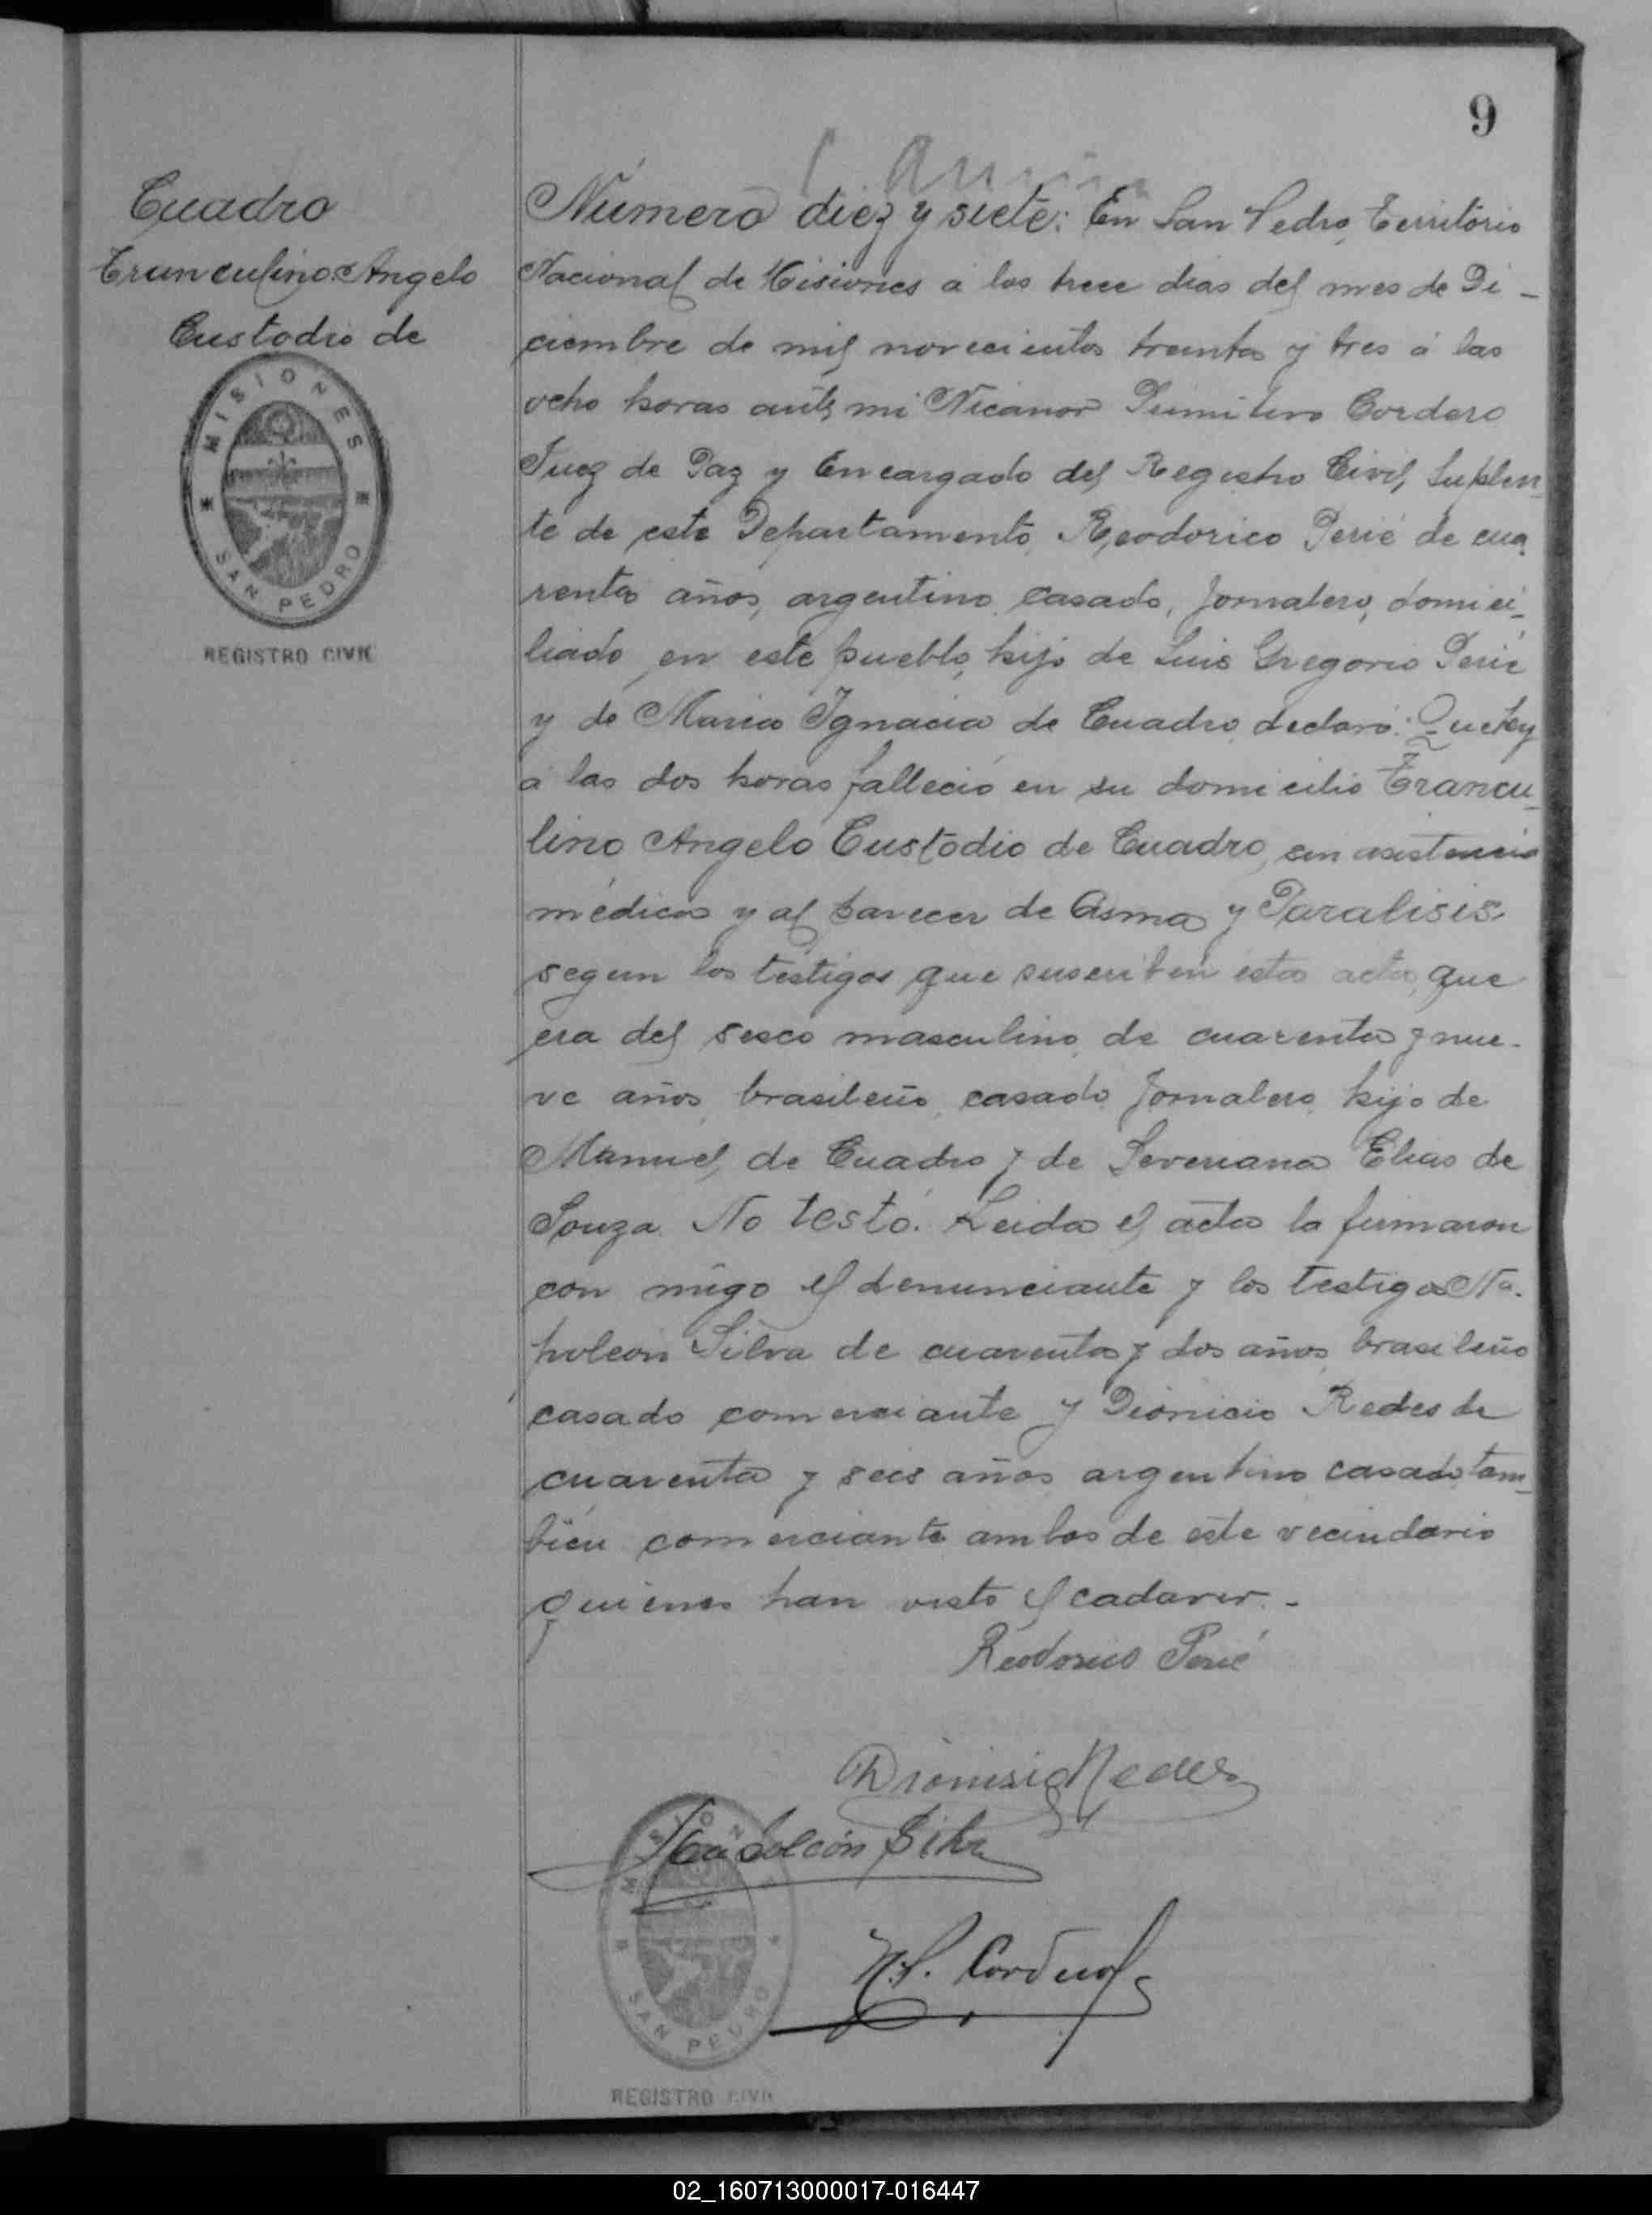 9
Cuadro
Trunculino Angelo
Custodio de
MISIONES
SAN PEDRO
REGISTRO CIVIL
Número diez y siete: En San Pedro, Territorio
Nacional de Misiones a los trece dias del mes de Di-
ciembre de mil novecientos treinta y tres á las
ocho horas ante mi Nicanor Primitivo Cordero
Juez de Paz y Encargado del Registro Civil, Suplen-
te de este Departamento, Reodorico Perié de cua-
renta años, argentino casado, Jornalero, domici-
liado en este pueblo, hijo de Luis Gregorio Perié
y de Maria Ignacia de Cuadro declaró: Que hoy
á las dos horas falleció en su domicilio Trancu-
lino Angelo Custodio de Cuadro, sin asistencia
médica y al parecer de Asma y Paralisis
segun los testigos que suscriben esta acta, que
era del sexo masculino, de cuarenta y nue-
ve años, brasileño, casado, Jornalero, hijo de
Manuel de Cuadro y de Severiana Elias de
Souza. No testó. Leida el acta la firmaron
con migo el denunciante y los testigos Na-
poleon Silva de cuarenta y dos años, brasileño
casado comerciante y Dionicio Redes de
cuarenta y seis años argentino casado, tam-
bien comerciante ambos de este vecindario
quienes han visto el cadaver.-
Reodorico Perié
Dionisio Redes
Napoleón Silva
N.P. Cordero
MISIONES
SAN PEDRO
REGISTRO CIVIL
02_160713000017-016447